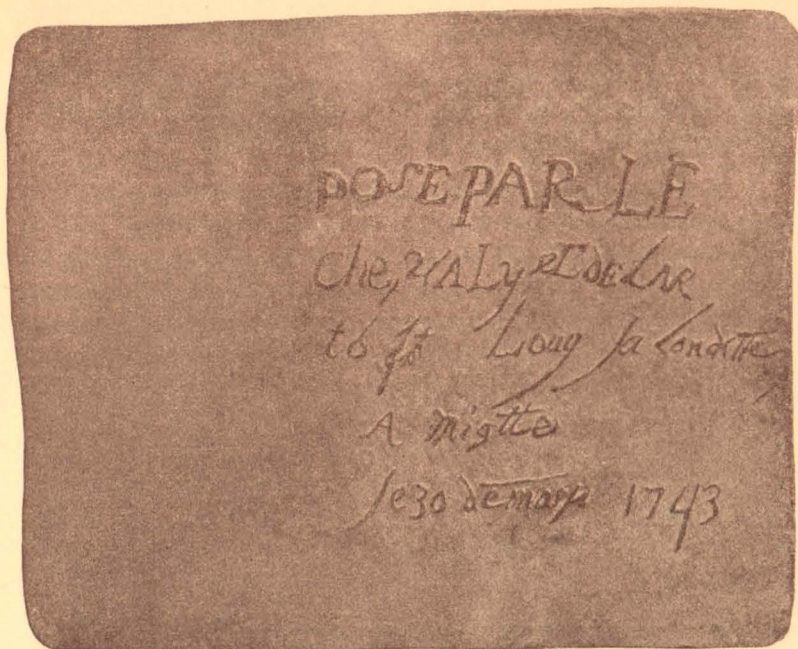 POSE PAR LE
Chevalyet DE LAR
to st Louy la londette
A miotte
le 30 de mars 1743